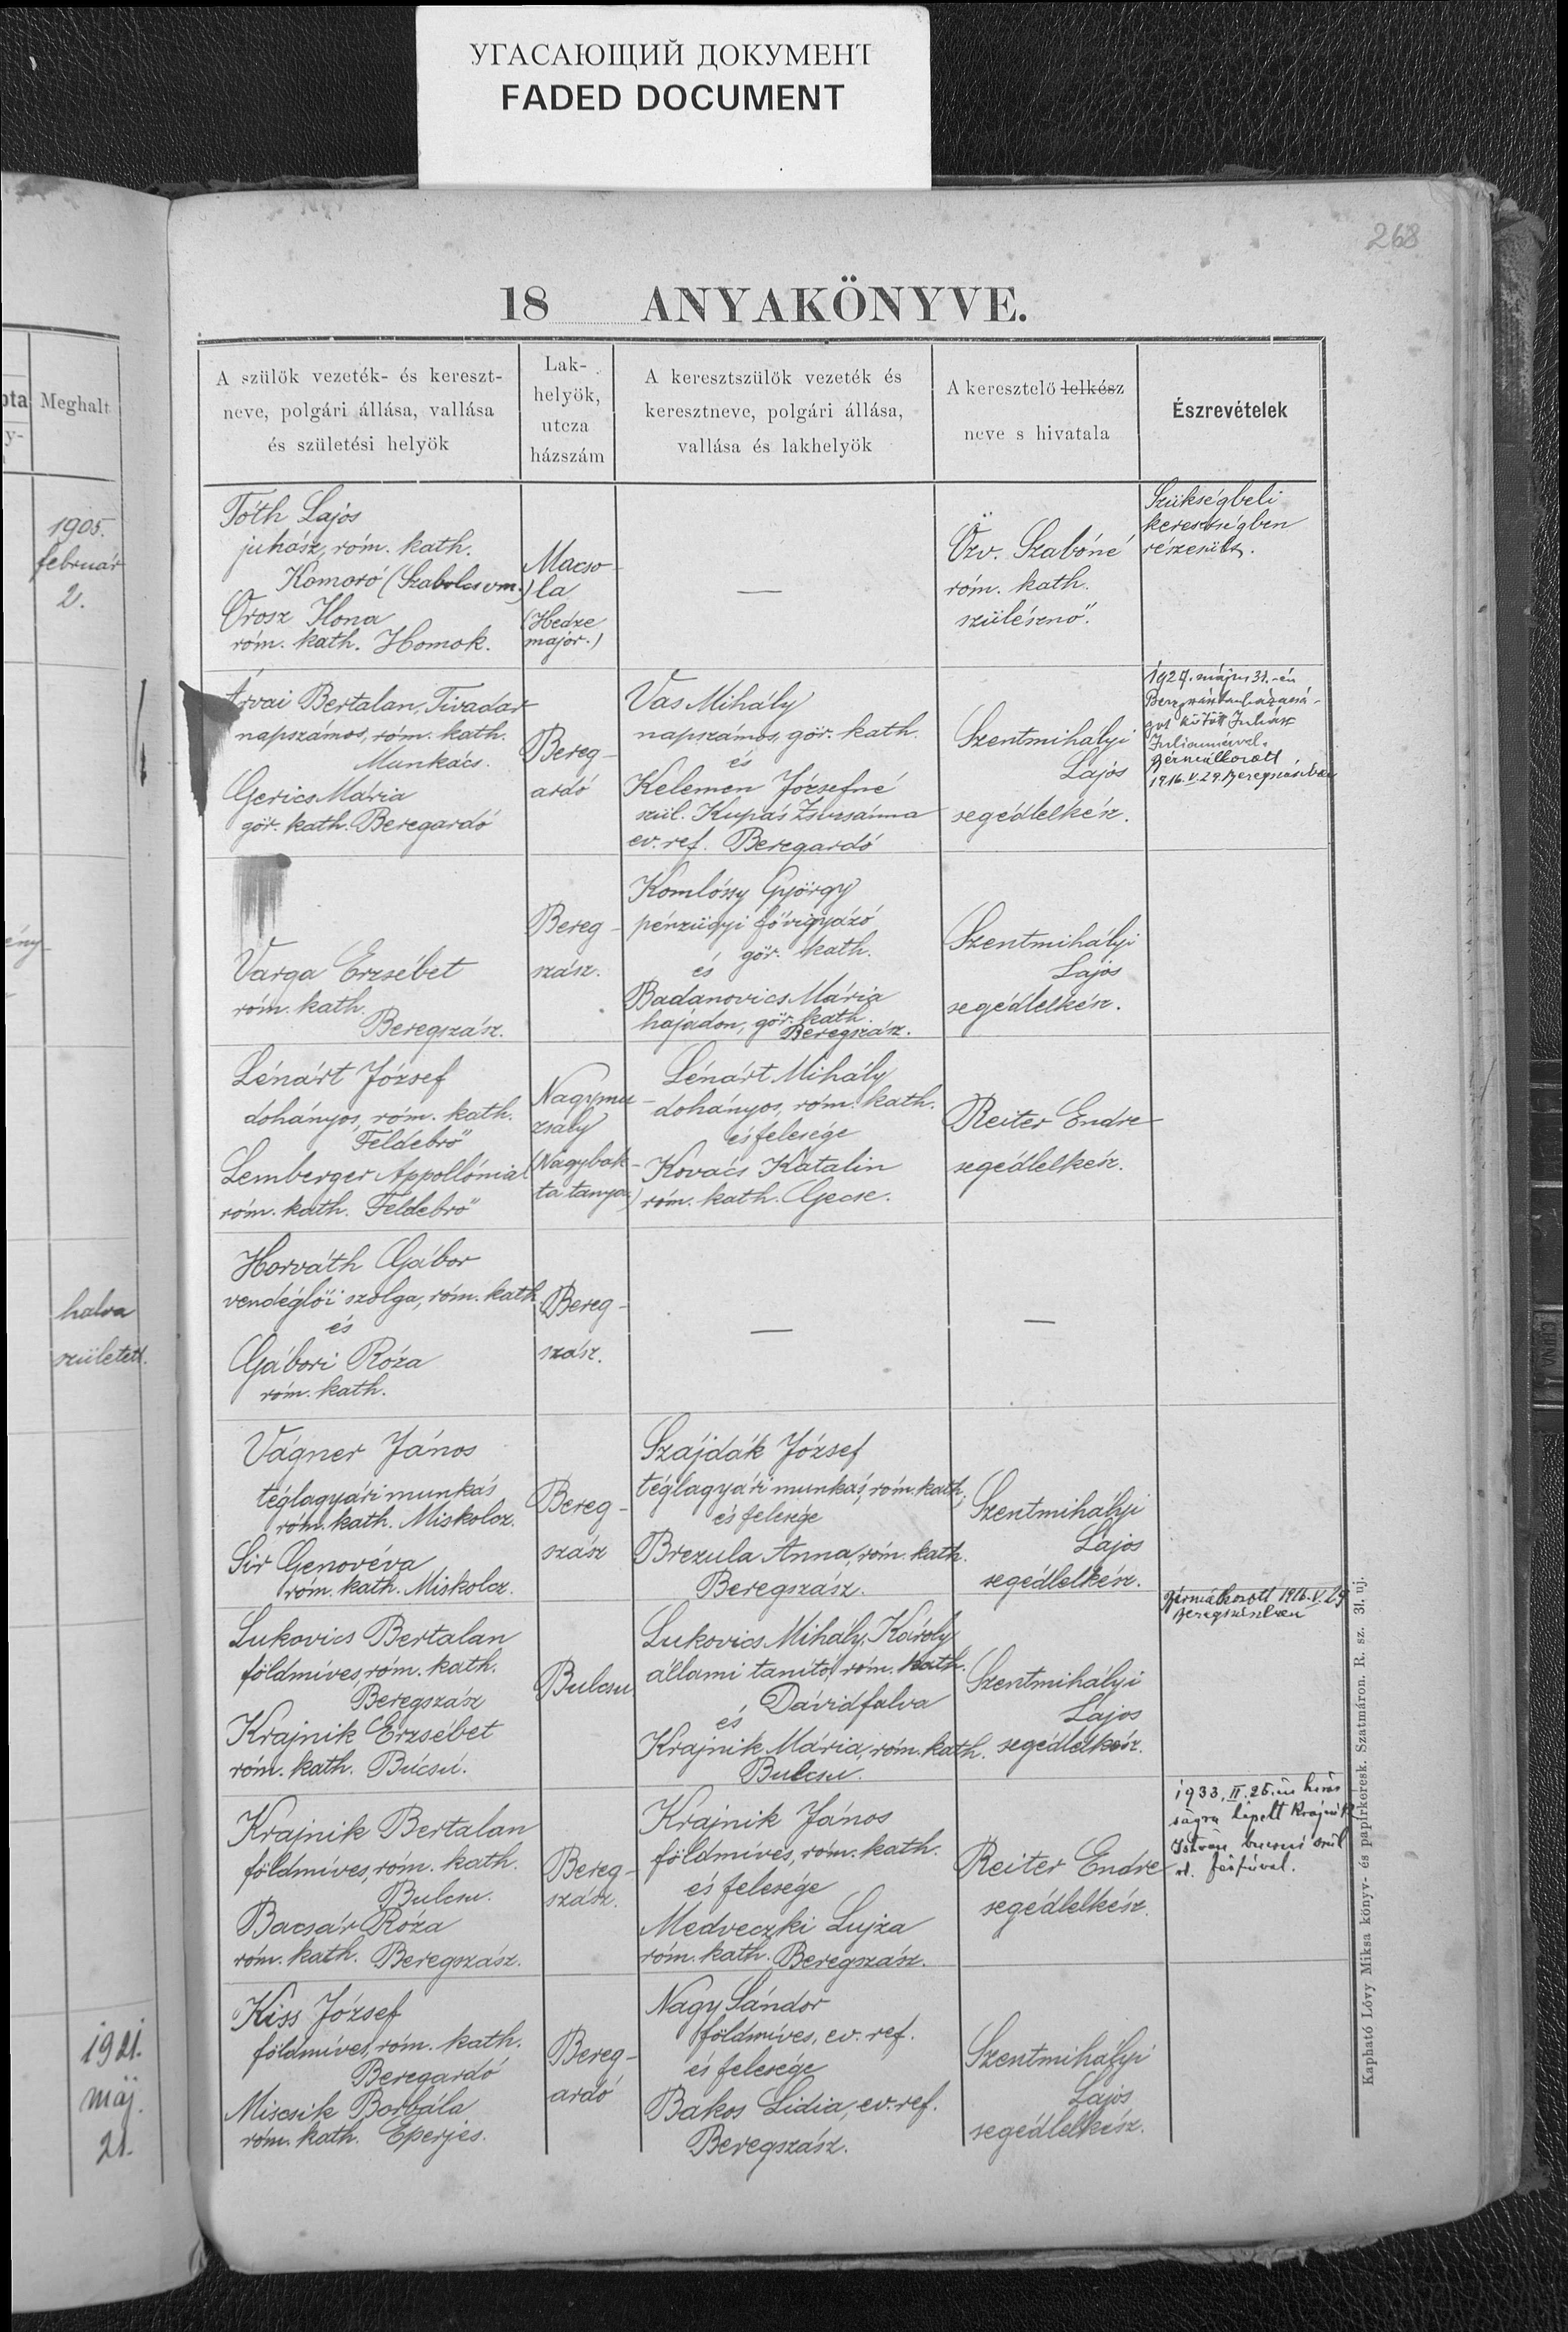 УГАСАЮЩИЙ ДОКУМЕНТ
FADED DOCUMENT
268
18 ANYAKÖNYVE.
Meghalt
1905.
február
2.
halva
született.
1921.
máj.
21.
A szülők vezeték- és kereszt-
neve, polgári állása, vallása
és születési helyök
Lak-
helyök,
utcza
házszám
A keresztszülők vezeték és
keresztneve, polgári állása,
vallása és lakhelyök
A keresztelő lelkész
neve s hivatala
Észrevételek
Tóth Lajos
juhász, róm. kath.
Komoró (Szabolcs vm.)
Orosz Ilona
róm. kath. Homok.
Macso-
la
(Hedze
major.)
—
Özv. Szabóné
róm. kath.
szülésznő.
Szükségbeli
keresztségben
részesült.
Árvai Bertalan, Tivadar
napszámos, róm. kath.
Munkács.
Gerics Mária
gör. kath. Beregardó
Bereg-
ardó
Vas Mihály
napszámos, gör. kath.
és
Kelemen Józsefné
szül. Kupás Zsuzsánna
ev. ref. Beregardó
Szentmihályi
Lajos
segédlelkész.
1927. május 31.-én
kötött
Bérmálkozott
1916. V. 29. Beregszászban
Varga Erzsébet
róm. kath.
Beregszász.
Bereg-
szász.
Komlóssy György
pénzügyi fővigyázó
gör. kath.
és
Badanovics Mária
hajadon, gör. kath.
Beregszász.
Szentmihályi
Lajos
segédlelkész.
Lénárt József
dohányos, róm. kath.
Feldebrő
Lemberger Appollónia
róm. kath. Feldebrő
Nagymu-
zsaly
(Nagybak-
ta tanya)
Lénárt Mihály
dohányos, róm. kath.
és felesége
Kovács Katalin
róm. kath. Gecse.
Reiter Endre
segédlelkész.
Horváth Gábor
vendéglői szolga, róm. kath
és
Gábori Róza
róm. kath.
Bereg-
szász.
—
—
Vágner János
téglagyári munkás
róm. kath. Miskolcz.
Sir Genovéva
róm. kath. Miskolcz.
Bereg-
szász
Szajdák József
téglagyári munkás, róm. kath.
és felesége
Brezula Anna, róm. kath.
Beregszász.
Szentmihályi
Lajos
segédlelkész.
Lukovics Bertalan
földmíves, róm. kath.
Beregszász
Krajnik Erzsébet
róm. kath. Búcsú.
Bulcsu
Lukovics Mihály, Károly
állami tanító, róm. kath.
Dávidfalva
és
Krajnik Mária, róm. kath.
Bulcsu.
Szentmihályi
Lajos
segédlelkész.
Bérmálkozott 1916. V. 29
Beregszászban
Krajnik Bertalan
földmíves, róm. kath.
Bulcsu.
Bacsár Róza
róm. kath. Beregszász.
Bereg-
szász.
Krajnik János
földmíves, róm. kath.
és felesége
Medveczki Lujza
róm. kath. Beregszász.
Reiter Endre
segédlelkész.
1933. II. 25.-én házas
ságra lépett Krajnik
István
Kiss József
földmíves, róm. kath.
Beregardó
Miscsik Borbála
róm. kath. Eperjes.
Bereg-
ardó
Nagy Sándor
földmíves, ev. ref.
és felesége
Bakos Lidia, ev. ref.
Beregszász.
Szentmihályi
Lajos
segédlelkész.
Kapható Lövy Miksa könyv- és papirkeresk. Szatmáron. R. sz. 31. uj.